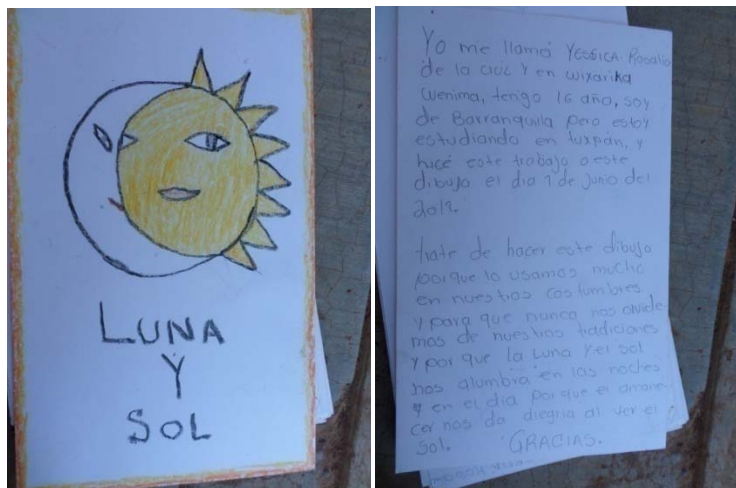 LUNA
Y
SOL
Yo me llamo YESSICA Rosalio
de la cruz Y en wixarika
Wenima, tengo 16 año, soy
de Barranquilla pero estoy
estudiando en tuxpán, y
hice este trabajo o este
dibujo el dia 7 de Junio del
trate de hacer este dibujo
porque lo usamos mucho
en nuestras costumbres
y para que nunca nos olvide-
mos de nuestras tradiciones
y por que la Luna Y el Sol
nos alumbra en las noches
y en el dia por que el amane-
cer nos da alegria al ver el
Sol. GRACIAS.